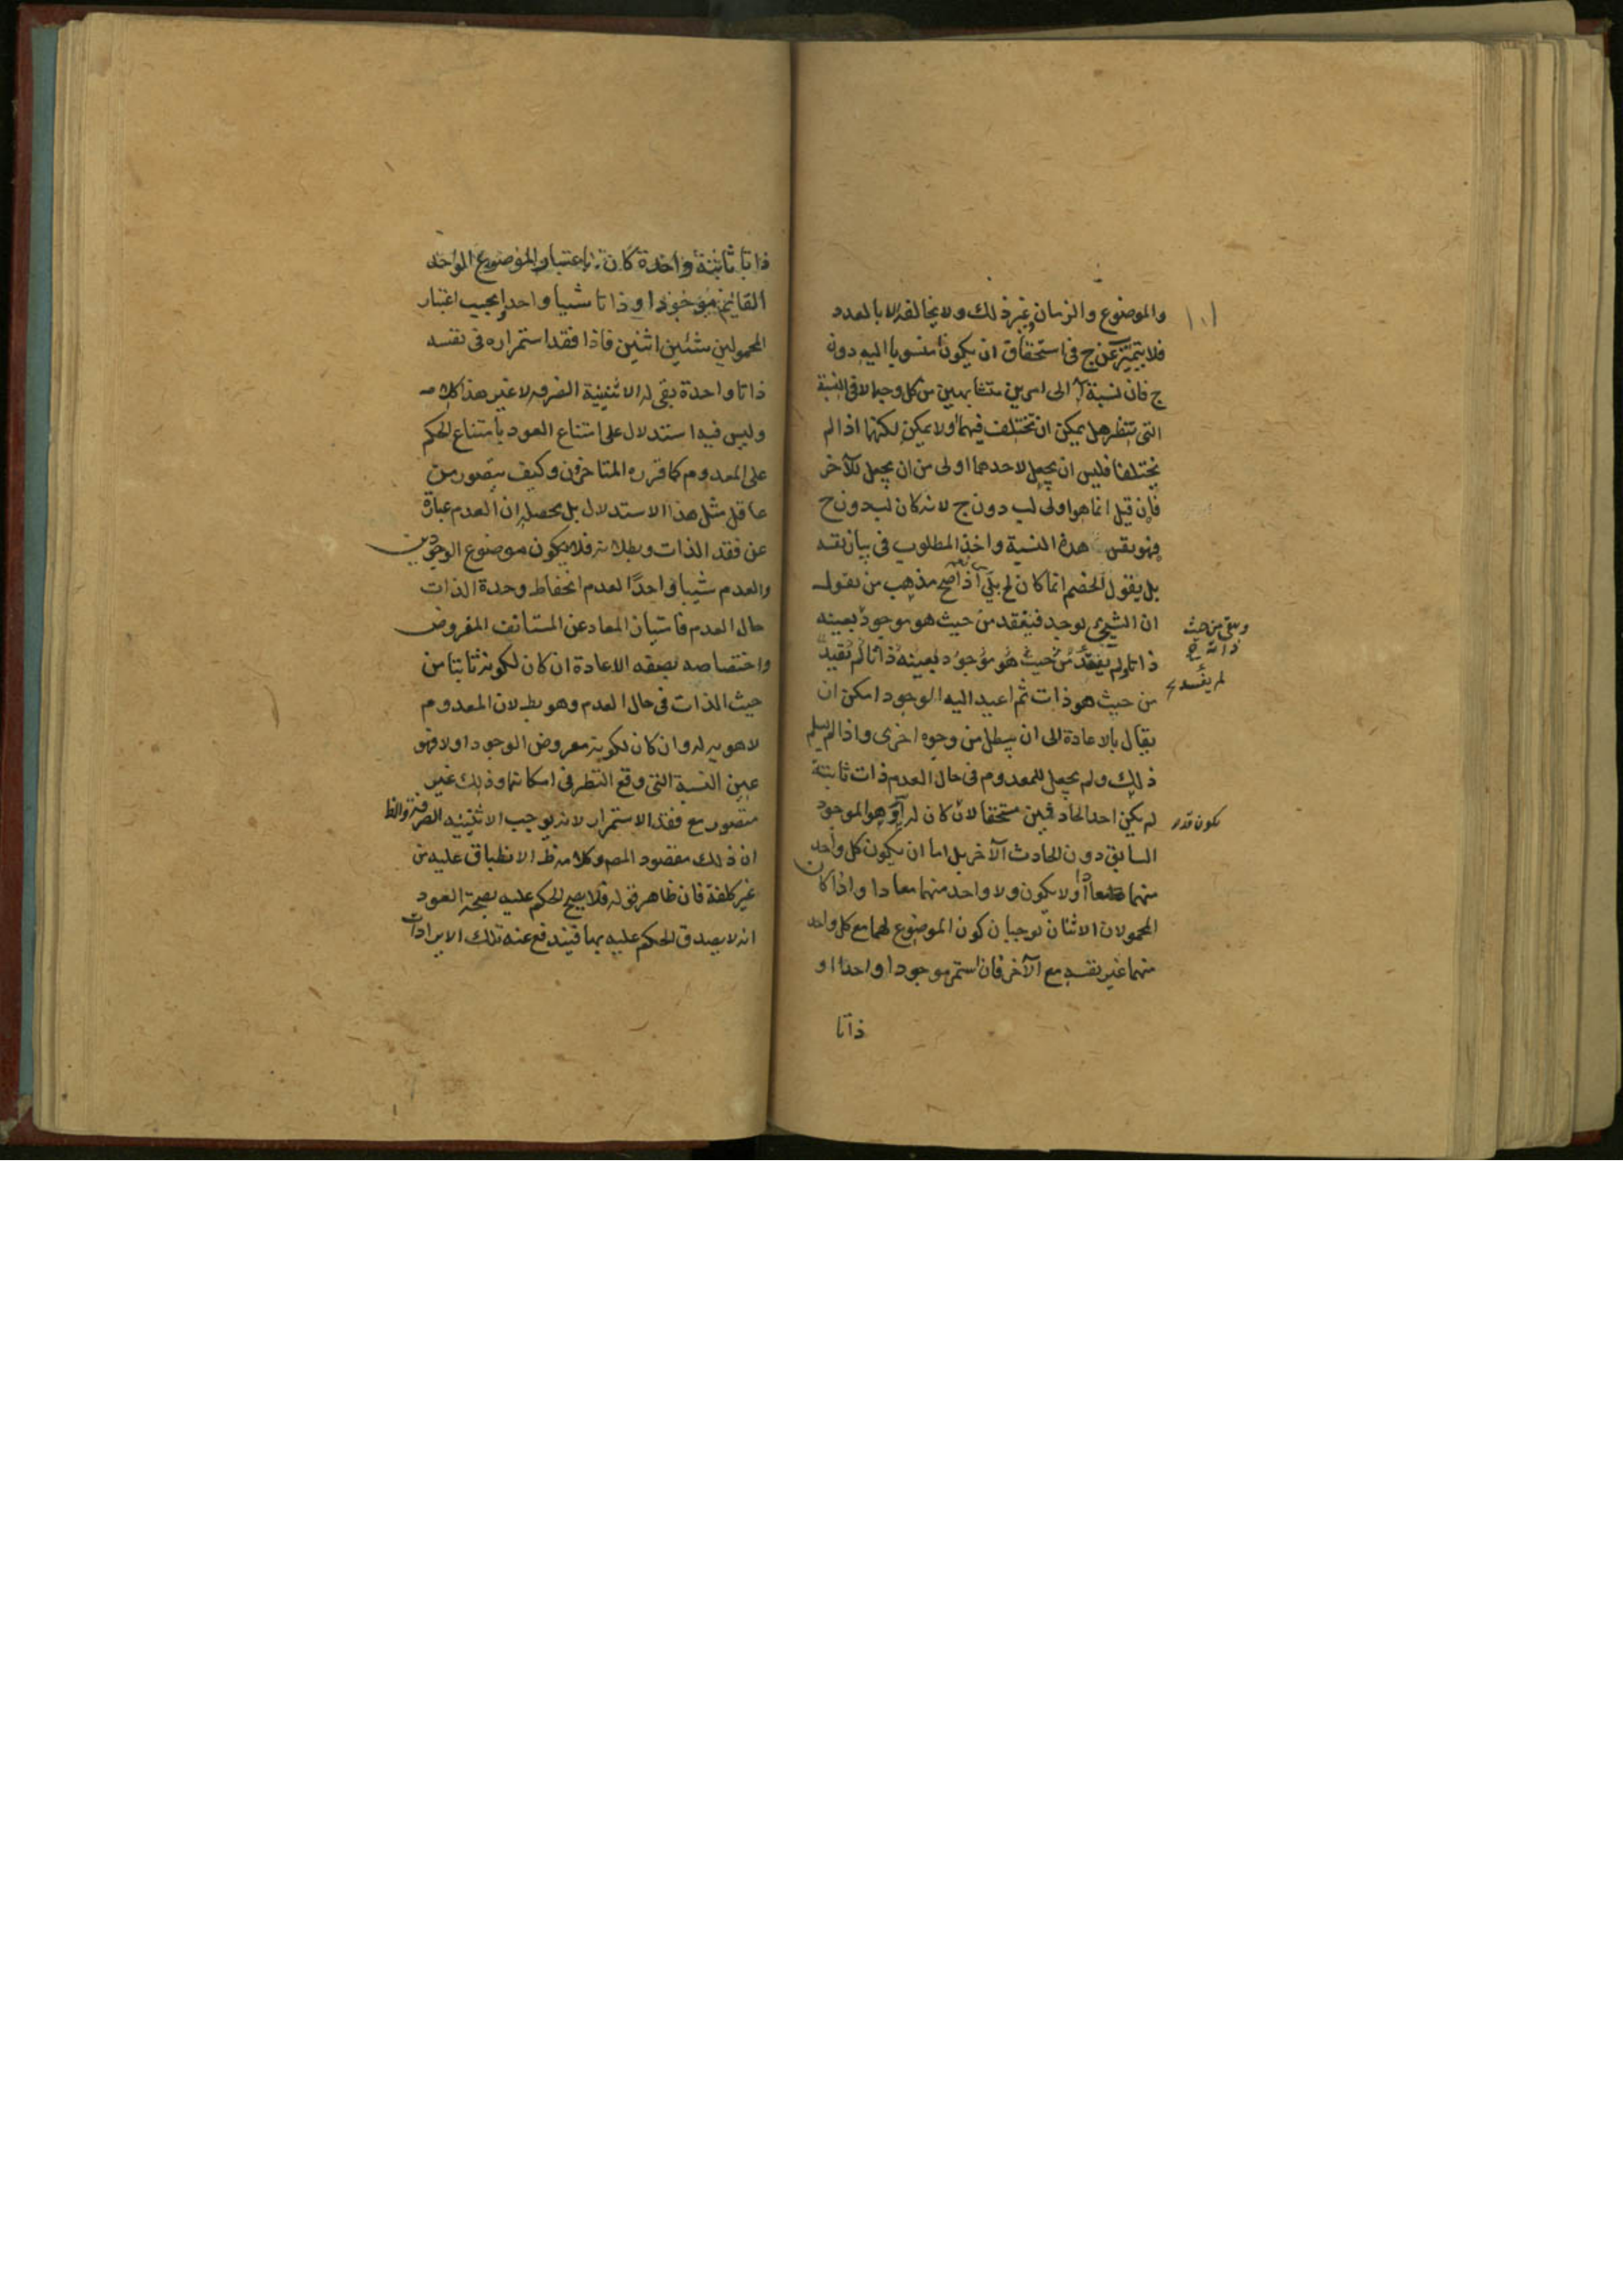 والموضوع والزمان وغير ذلك ولا يخالفه الا بالعدد
فلا يتميز عن ج في استحقاق ان يكون آ منسوبا اليه دون
ج فان نسبة آ الى امرين متشابهين من كل وجه الا في النسبة
التي ننظر هل يمكن ان تختلف فيهما او لا يمكن لكنهما اذا لم
يختلفا فليس ان يجعل لاحدهما اولى من ان يجعل للآخر
فان قيل انما هو اولى لب دون ج لانه كان لب دون ج
فهو نفس هذه النسبة واخذ المطلوب في بيان نفسه
بل يقول الخصم انما كان لج بلى اذا صح مذهب من يقول
ان الشيئ يوجد فيفقد من حيث هو موجود بعينه
وبقي من حيث
ذاته
ذاتا ولم يفقد من حيث هو موجود بعينه ذاتا لم
لم يفسد
من حيث هو ذات ثم اعيد اليه الوجود امكن ان
يقال بالاعادة الى ان يبطل من وجوه اخرى واذا لم يسلم
ذلك ولم يجعل للمعدوم في حال العدم ذات ثابتة
لم يكن احد الحادثين مستحقا لان كان له او هو الموجود
يكون قد
السابق دون الحادث الآخر بل اما ان يكون كل واحد
منهما معادا او لا يكون ولا واحد منهما معادا واذا كان
المحمولان الاثنان يوجبان كون الموضوع لهما مع كل واحد
منهما غير نفسه مع الآخر فان استمر موجودا واحدا او
ذاتا
ذاتا ثابتة واحدة كان باعتبار الموضوع الواحد
القائم موجودا او ذاتا شيا واحدا وبحسب اعتبار
المحمولين شئين اثنين فاذا فقد استمراره في نفسه
ذاتا واحدة بقى له الاثنينية الصرفه لا غير هذا كلامه
وليس فيه استدلال على امتناع العود بامتناع الحكم
على المعدوم كما قرره المتاخرون وكيف يتصور من
عاقل مثل هذا الاستدلال بل محصله ان العدم عبارة
عن فقد الذات وبطلانه فلا يكون موضوع الوجودين
والعدم شيا واحدا لعدم انحفاظ وحدة الذات
حال العدم فامتياز المعاد عن المستانف المفروض
واختصاصه بصفه الاعادة ان كان لكونه ثابتا من
حيث الذات في حال العدم وهو بط لان المعدوم
لا هويه له وان كان لكونه معروض الوجود اولا فهو
عين النسبة التي وقع النظر في امكانها وذلك غير
متصور مع فقد الاستمرار لانه يوجب الاثنينيه الصرفة والظ
ان ذلك مقصود المص وكلامه ظ الانطباق عليه من
غير كلفة فان ظاهر قوله فلا يصح الحكم عليه بصحة العود
انه لا يصدق الحكم عليه بها فيندفع عنه تلك الايرادات